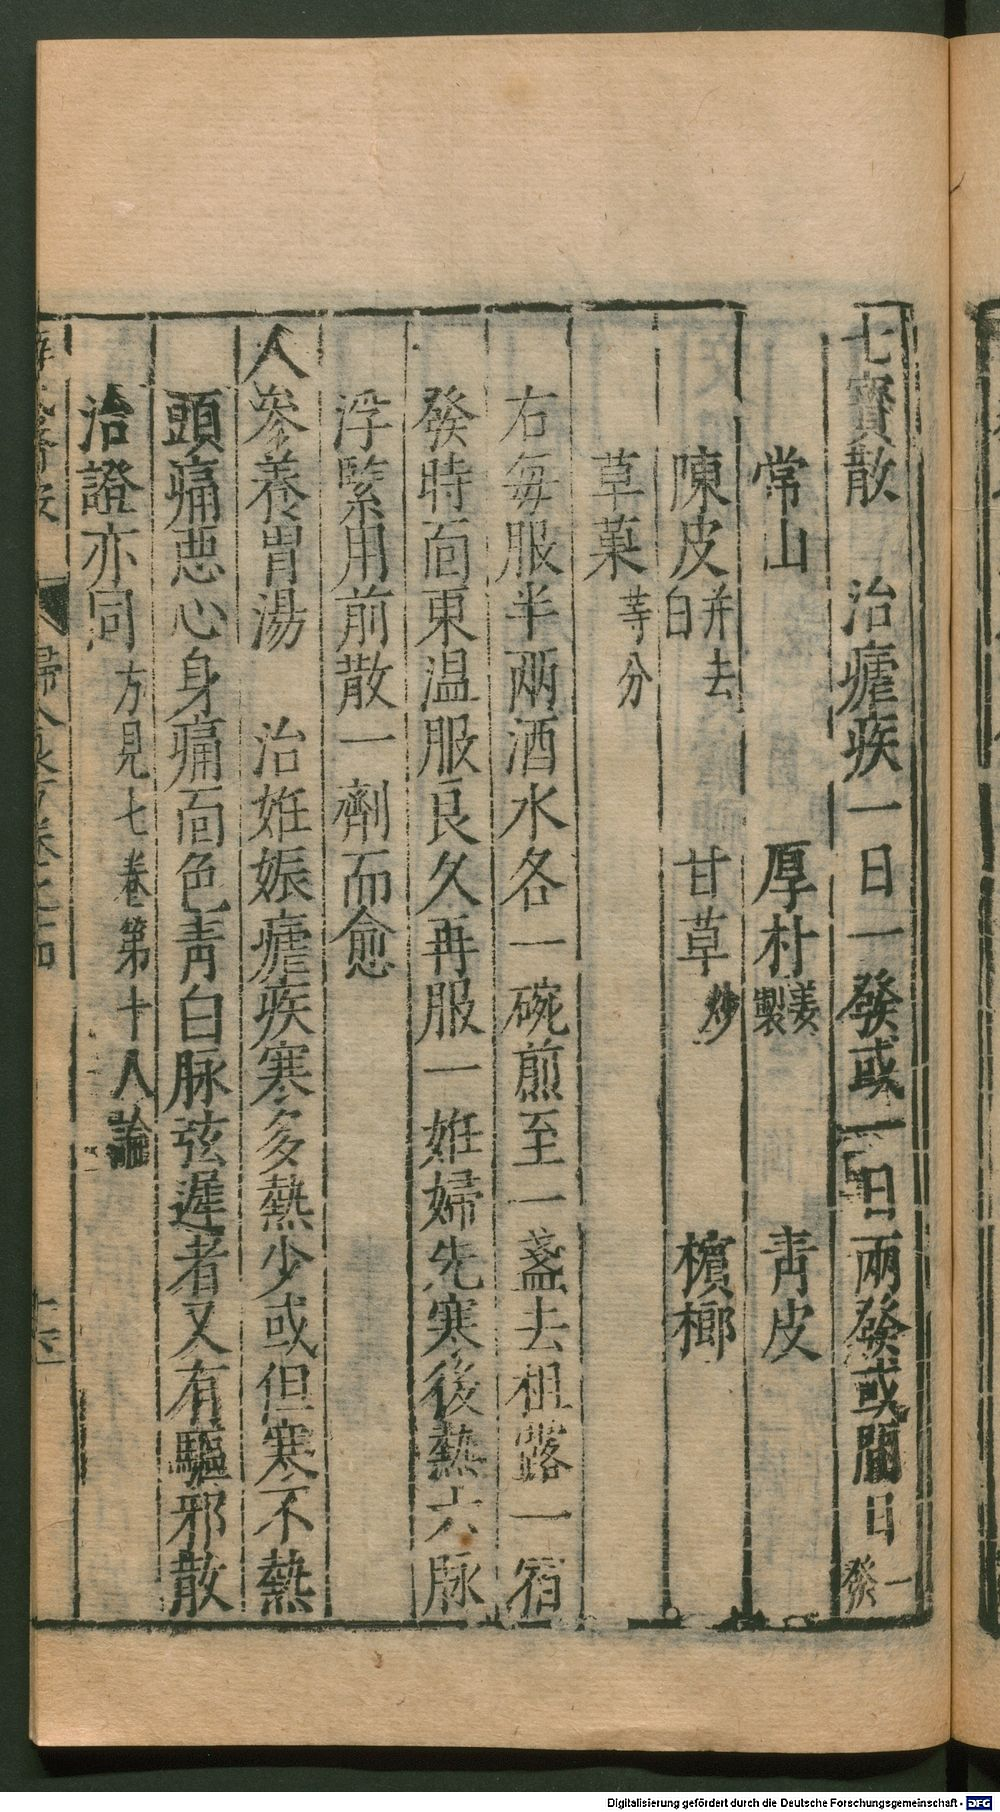 七寳散　治瘧疾一日一發或一日兩發或間日一發
常山　厚朴姜製　青皮
陳皮并去白　甘草炒　檳榔
草菓等分
右每服半兩酒水各一碗煎至一盞去柤露一宿
發時面東温服良久再服一姙婦先寒後熱六脉
浮緊用前散一劑而愈
人參養胃湯　治姙娠瘧疾寒多熱少或但寒不熱
頭痛惡心身痛面色青白脉弦遲者又有驅邪散
治證亦同方見七卷第十八論
Digitalisierung gefördert durch die Deutsche Forschungsgemeinschaft - DFG